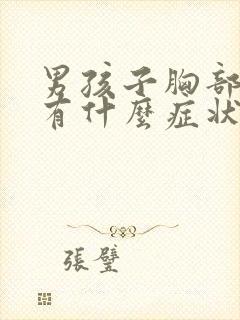 男孩子胸部
有什麼症狀
張璧